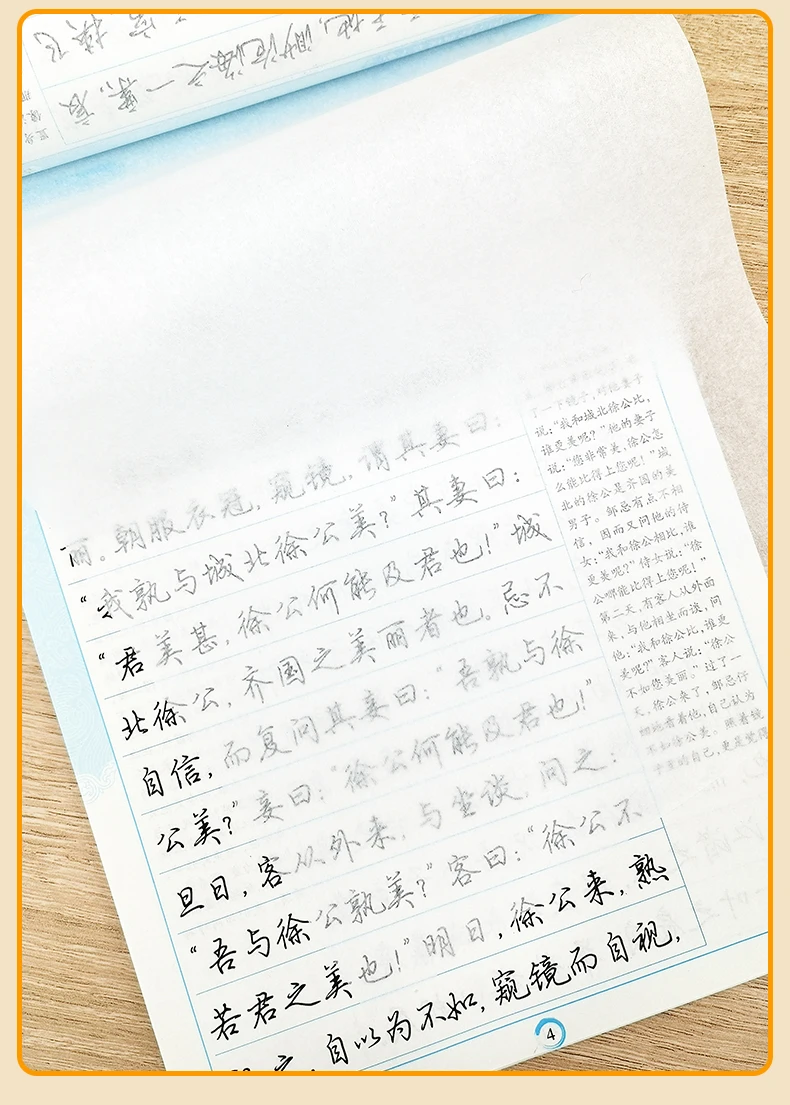 挟飞
地,渺沧海之一粟,哀
丽。朝服衣冠,窥镜,谓其妻曰:
“我孰与城北徐公美?”其妻曰:
“君美甚,徐公何能及君也!”城
北徐公,齐国之美丽者也。忌不
自信,而复问其妾曰:“吾孰与徐
公美?”妾曰:“徐公何能及君也!”
旦日,客从外来,与坐谈,问之:
“吾与徐公孰美?”客曰:“徐公不
若君之美也!”明日,徐公来,熟
自以为不如,窥镜而自视,
了一下镜子,对他妻子
说:“我和城北徐公比,
谁更美呢?”他的妻子
说:“您非常美,徐公怎
么能比得上您呢!”城
北的徐公是齐国的美
男子。邹忌有点不相
信,因而又问他的侍
女:“我和徐公相比,谁
更美呢?”侍女说:“徐
公哪能比得上您呢!”
第二天,有客人从外面
来,与他相坐而谈,问
他:“我和徐公比,谁更
美呢?”客人说:“徐公
不如您美丽。”过了一
天,徐公来了,邹忌仔
细地看着他,自己认为
不如徐公美。照着镜
子里的自己,更是觉得
4